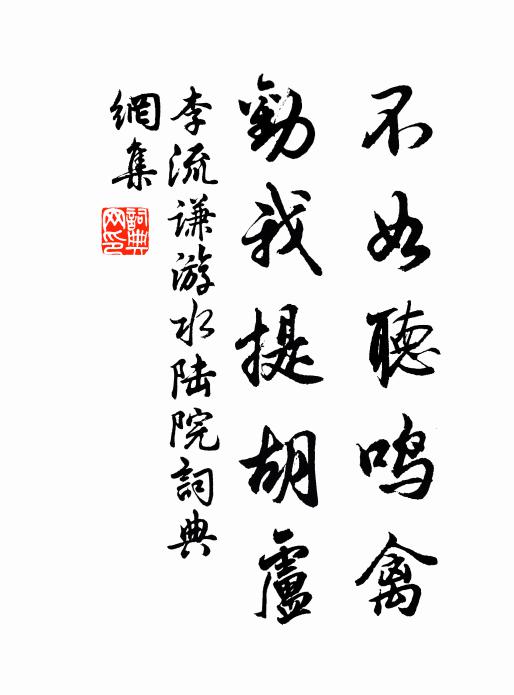 不如聽鳴禽
勸我提胡盧
李流谦游水陆院詞典
網集
詞典网印